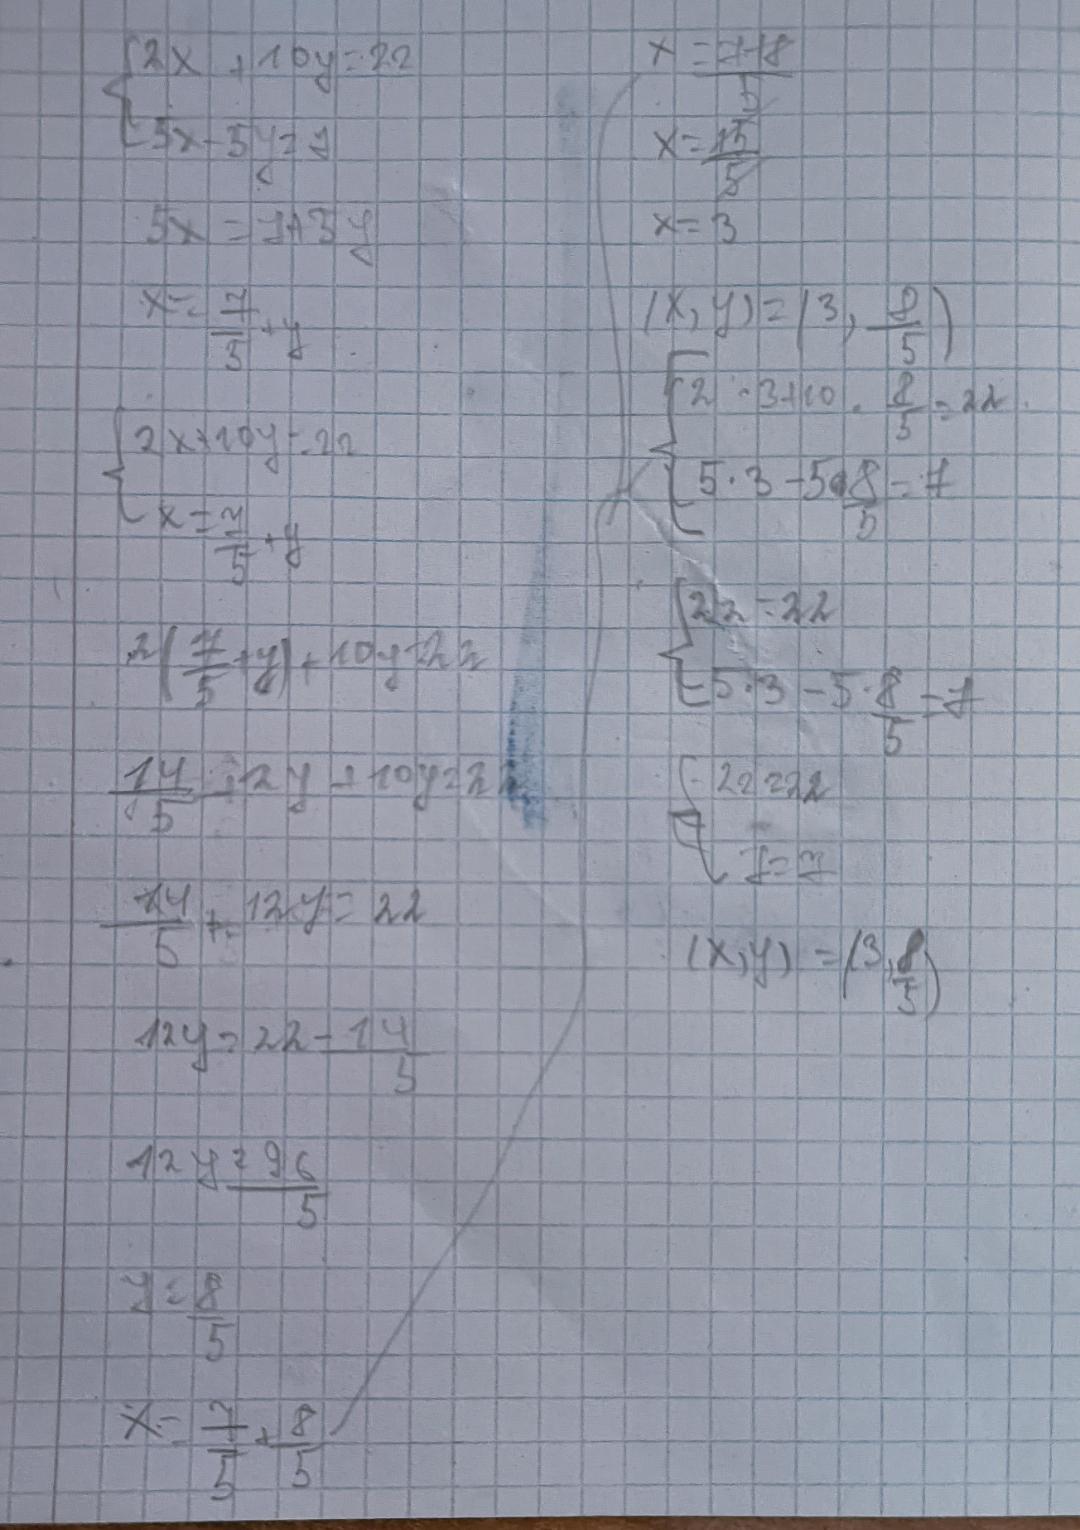 2x + 10y = 22
5x - 5y = 7
5x = 7 + 5y
x = 7/5 + y
2x + 10y = 22
x = 7/5 + y
2(7/5 + y) + 10y = 22
14/5 + 2y + 10y = 22
14/5 + 12y = 22
12y = 22 - 14/5
12y = 96/5
y = 8/5
x = 7/5 + 8/5
x = 7+8/5
x = 15/5
x = 3
(x, y) = (3, 8/5)
2 · 3 + 10 · 8/5 = 22
5 · 3 - 5 · 8/5 = 7
22 = 22
5 · 3 - 5 · 8/5 = 7
22 = 22
7 = 7
(x, y) = (3, 8/5)